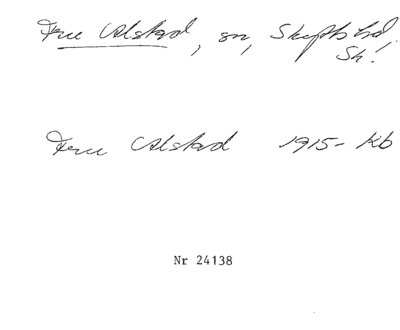 Fru Alstad, sn, Skepts hd.
Sh!
Fru Alstad 1915- Kb
Nr 24138